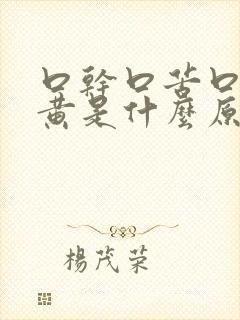 口幹口苦口
黃是什麼原
楊茂榮